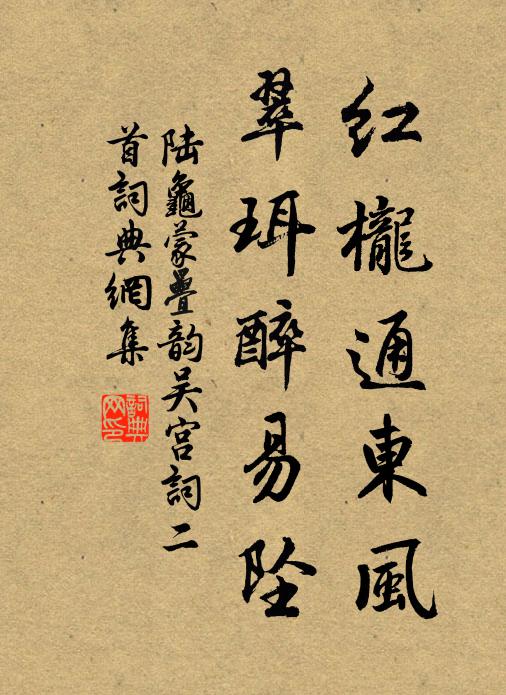 红櫳通東風
翠珥醉易坠
陆龜蒙疊韵吴宫詞二
首詞典網集
詞典
网印